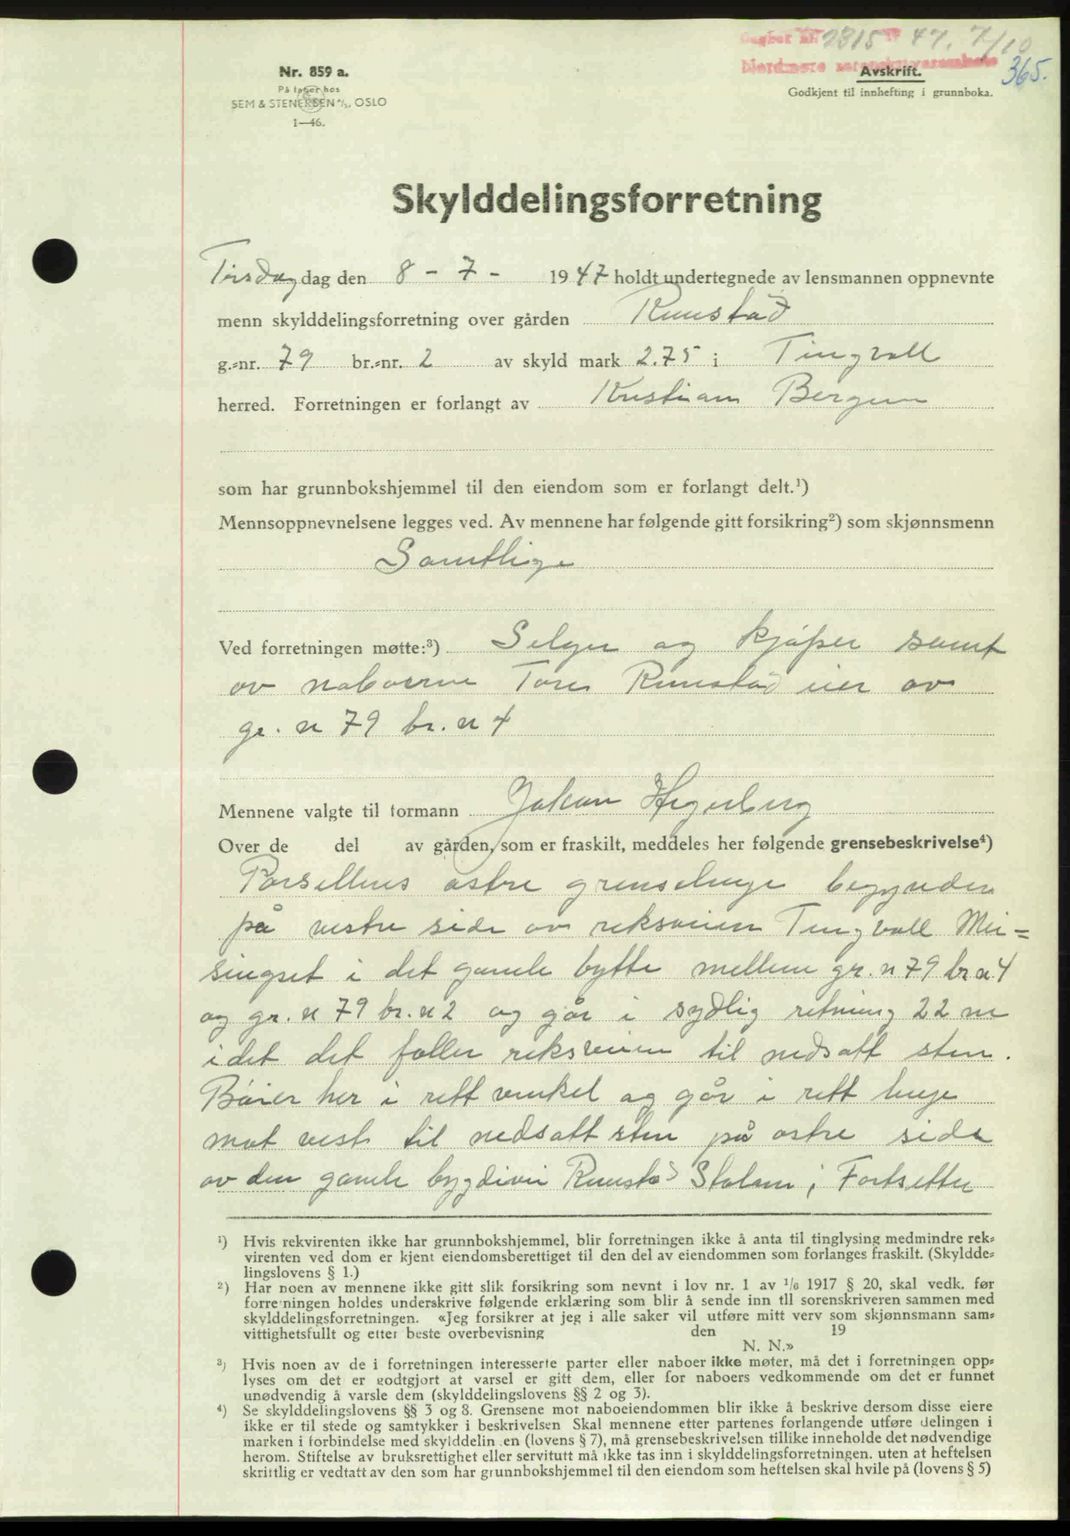 Dagbok nr. 2815 1947. 7/10
Nordmøre sorenskriverembete
365.
Nr. 859 a.
På lager hos
SEM & STENERSEN A/S, OSLO
1—46.
Avskrift.
Godkjent til innhefting i grunnboka.
Skylddelingsforretning
Tirsdag dag den 8 - 7 - 1947 holdt undertegnede av lensmannen oppnevnte
menn skylddelingsforretning over gården Runstad
g.-nr. 79 br.-nr. 2 av skyld mark 2.75 i Tingvoll
herred. Forretningen er forlangt av Kristian Bergem
som har grunnbokshjemmel til den eiendom som er forlangt delt.¹)
Mennsoppnevnelsene legges ved. Av mennene har følgende gitt forsikring²) som skjønnsmenn
Samtlige
Ved forretningen møtte:³) Selger og kjøper samt
av naboerne Tore Runstad eier av
gr. n 79 br. n 4
Mennene valgte til formann Johan Hegerberg
Over de del av gården, som er fraskilt, meddeles her følgende grensebeskrivelse⁴)
Parsellens østre grenselinje begynder
på vestre side av riksveien Tingvoll Mei-
singset i det gamle bytte mellem gr. n 79 br n 4
og gr. n 79 br. n 2 og går i sydlig retning 22 m
idet det føller riksveien til nedsatt sten.
Bøier her i rett vinkel og går i rett linje
mot vest til nedsatt sten på østre side
av den gamle bygdivei Runstad Stolan; Fortsetter
¹) Hvis rekvirenten ikke har grunnbokshjemmel, blir forretningen ikke å anta til tinglysing medmindre rek-
virenten ved dom er kjent eiendomsberettiget til den del av eiendommen som forlanges fraskilt. (Skyldde-
lingslovens § 1.)
²) Har noen av mennene ikke gitt slik forsikring som nevnt i lov nr. 1 av 1/6 1917 § 20, skal vedk. før
forretningen holdes underskrive følgende erklæring som blir å sende inn til sorenskriveren sammen med
skylddelingsforretningen. «Jeg forsikrer at jeg i alle saker vil utføre mitt verv som skjønnsmann sam-
vittighetsfullt og etter beste overbevisning den 19
N. N.»
³) Hvis noen av de i forretningen interesserte parter eller naboer ikke møter, må det i forretningen opp-
lyses om det er godtgjort at varsel er gitt dem, eller for naboers vedkommende om det er funnet
unødvendig å varsle dem (skylddelingslovens §§ 2 og 3).
⁴) Se skylddelingslovens §§ 3 og 8. Grensene mot naboeiendommen blir ikke å beskrive dersom disse eiere
ikke er til stede og samtykker i beskrivelsen Skal mennene etter partenes forlangende utføre delingen i
marken i forbindelse med skylddelingen (lovens § 7), må grensebeskrivelsen tillike inneholde det nødvendige
herom. Stiftelse av bruksrettighet eller servitutt må ikke tas inn i skylddelingsforretningen. uten at heftelsen
skriftlig er vedtatt av den som har grunnbokshjemmel til den eiendom som heftelsen skal hvile på (lovens § 5)